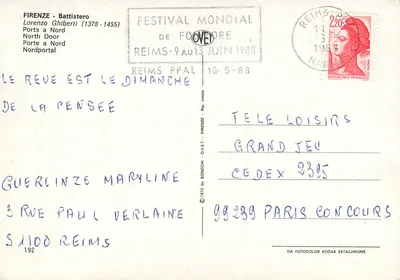 FIRENZE - Battistero
Lorenzo Ghiberti (1378 - 1455)
Porta a Nord
North Door
Porte a Nord
Nordportal
FESTIVAL MONDIAL
DE FOLKLORE
REIMS-9 AU 13 JUIN 1988
REIMS PPAL 16-5-88
OVET
LE REVE EST LE DIMANCHE
DE LA PENSEE
GUERLINZE MARYLINE
3 RUE PAUL VERLAINE
51100 REIMS
192
TELE LOISIRS
GRAND JEU
CEDEX 2395
99239 PARIS CONCOURS
GA FOTOCOLOR KODAK EKTACHROME